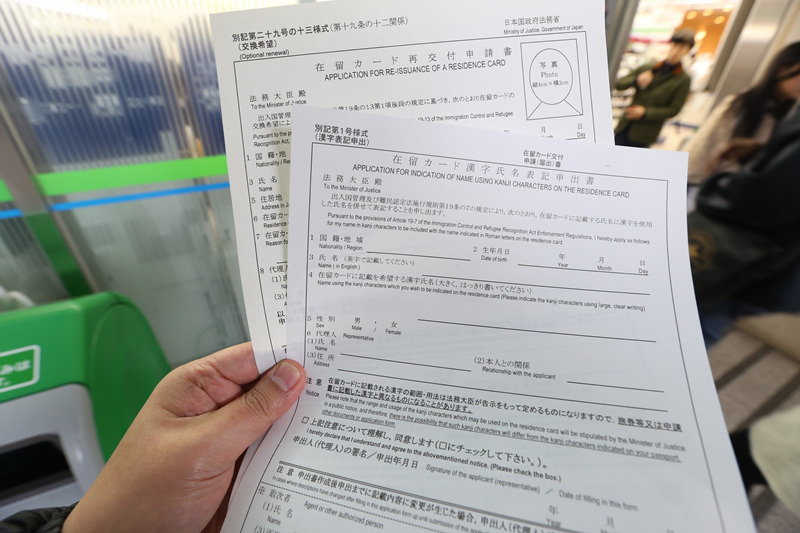 別記第二十九号の十三様式(第十九条の十二関係)
(交換希望)
(Optional renewal)
日本国政府法務省
Ministry of Justice, Government of Japan
在留カード再交付申請書
APPLICATION FOR RE-ISSUANCE OF A RESIDENCE CARD
写真
Photo
縦4cm×横3cm
法務大臣殿
To the Minister of Justice
出入国管理
第19条の13第1項後段の規定に基づき、次のとおり在留カードの
交換希望によ
Pursuant to the
19-13 of the Immigration Control and Refugee
Recognition Act,
月 日
1 国籍・地
Nationality / Re
3 氏名
Name
5 住居地
Address in J
6 在留カー
Residence
7 在留カー
Reason fo
8 代理人
以
申
別記第1号様式
(漢字表記申出)
在留カード交付
申請(届出)番
在留カード漢字氏名表記申出書
APPLICATION FOR INDICATION OF NAME USING KANJI CHARACTERS ON THE RESIDENCE CARD
法務大臣殿
To the Minister of Justice
出入国管理及び難民認定法施行規則第19条の7の規定により、次のとおり、在留カードに記載する氏名に漢字を使用
した氏名を併せて表記することを申し出ます。
Pursuant to the provisions of Article 19-7 of the Immigration Control and Refugee Recognition Act Enforcement Regulations, I hereby apply as follows
for my name in kanji characters to be included with the name indicated in Roman letters on the residence card.
1 国籍・地域
Nationality / Region
2 生年月日
Date of birth
年 月 日
Year Month Day
3 氏名(英字で記載してください)
Name ( in English )
4 在留カードに記載を希望する漢字氏名(大きく、はっきり書いてください)
Name using the kanji characters which you wish to be indicated on the residence card (Please indicate the kanji characters using large, clear writing)
5 性別 男 ・ 女
Sex Male / Female
6 代理人 Representative
(1)氏名
Name
(2)本人との関係
Relationship with the applicant
(3)住所
Address
注意 在留カードに記載される漢字の範囲・用法は法務大臣が告示をもって定めるものになりますので、旅券等又は申請
書に記載した漢字と異なるものになることがあります。
Notice Please note that the range and usage of the kanji characters which may be used on the residence card will be stipulated by the Minister of Justice
in a public notice, and therefore, there is the possibility that such kanji characters will differ from the kanji characters indicated on your passport,
other documents or application form.
□ 上記注意について理解し、同意します(□にチェックして下さい。)。
I hereby declare that I understand and agree to the abovementioned notice. (Please check the box.)
申出人(代理人)の署名/申出年月日 Signature of the applicant (representative) / Date of filling in this form
年 月
注意 申出書作成後申出までに記載内容に変更が生じた場合、申出人(代理人
In cases where descriptions have changed after filling in this application form up until submission of this
※ 取次者 Agent or other authorized person
(1)氏名
Name